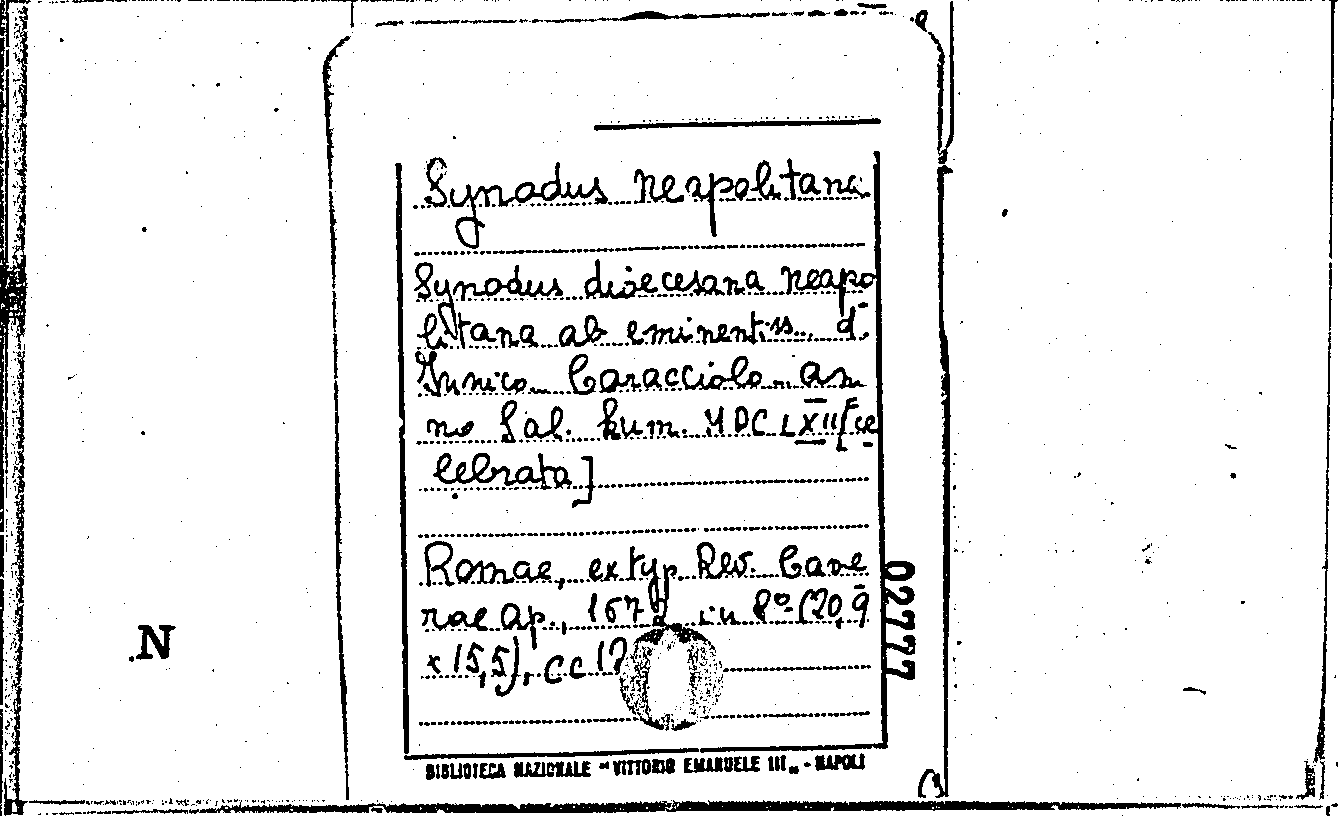 Synodus neapolitana
Synodus dioecesana neapo
litana ab eminentiss. d.
Innico Caracciolo an
no Sal. hum. MDCLXII [ce
lebrata]
Romae, ex typ. Rev. Came
rae Ap., 167 in 8°- (20,9
x 15,5), cc
02777
N
BIBLIOTECA NAZIONALE "VITTORIO EMANUELE III" - NAPOLI